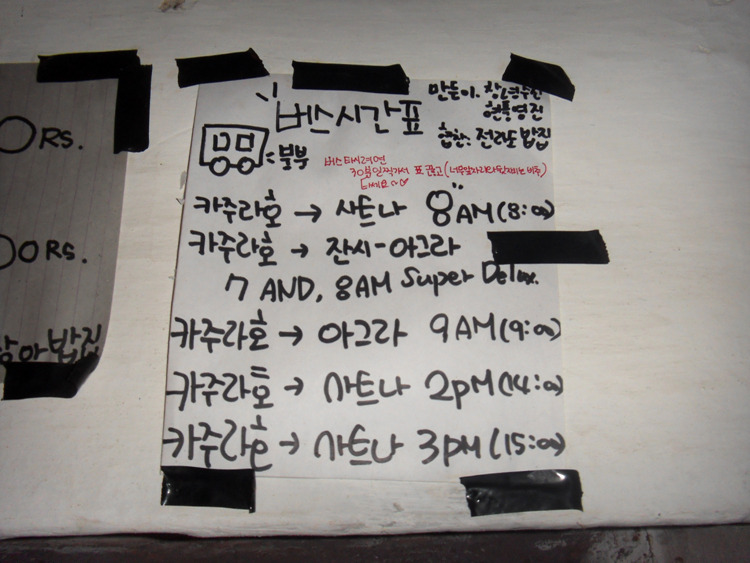 ORS.
OORS.
밥집
버스시간표
만든이: 창
현특영진
협찬: 전라도 밥집
= 붕붕
버스타시려면
30분일찍가서 표 끊고
타세요
카주라호 → 사트나 8AM(8:00)
카주라호 → 잔시-아그라
7 AND, 8AM Super Delux.
카주라호 → 아그라 9AM(9:00)
카주라호 → 사트나 2pM(14:00)
카주라호 → 사트나 3pM(15:00)